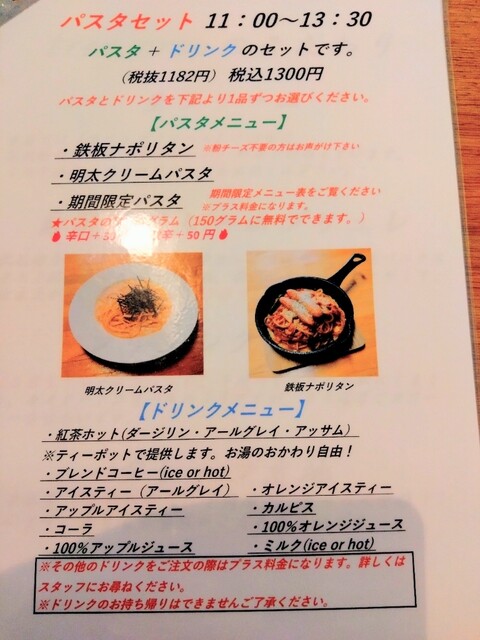 パスタセット 11：00～13：30
パスタ + ドリンク のセットです。
（税抜1182円） 税込1300円
パスタとドリンクを下記より1品ずつお選びください。
【パスタメニュー】
・鉄板ナポリタン ※粉チーズ不要の方はお声がけ下さい
・明太クリームパスタ
・期間限定パスタ 期間限定メニュー表をご覧ください
※プラス料金になります。
★パスタの グラム（150グラムに無料でできます。）
辛口＋3 辛＋50円
明太クリームパスタ 鉄板ナポリタン
【ドリンクメニュー】
・紅茶ホット(ダージリン・アールグレイ・アッサム)
※ティーポットで提供します。お湯のおかわり自由！
・ブレンドコーヒー(ice or hot)
・アイスティー（アールグレイ） ・オレンジアイスティー
・アップルアイスティー ・カルピス
・コーラ ・100%オレンジジュース
・100%アップルジュース ・ミルク(ice or hot)
※その他のドリンクをご注文の際はプラス料金になります。詳しくは
スタッフにお尋ねください。
※ドリンクのお持ち帰りはできませんご了承ください。